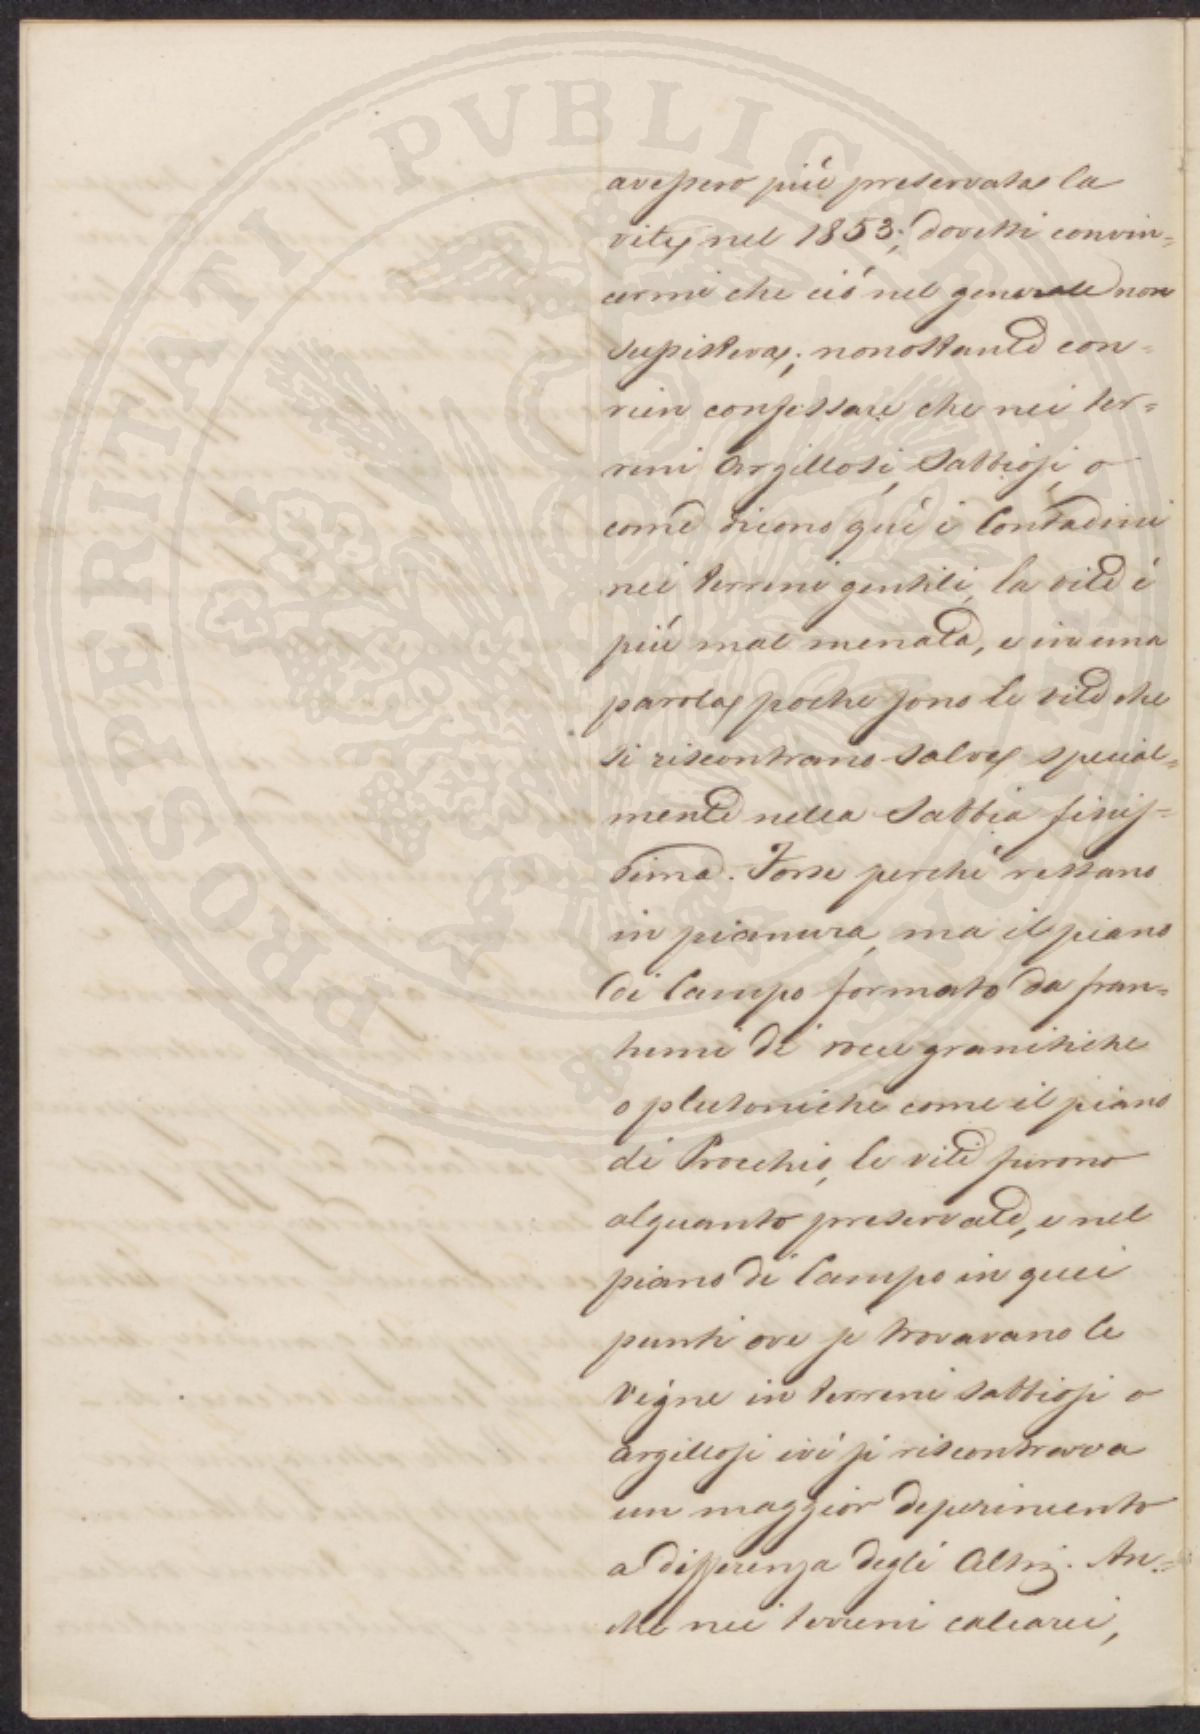 PROSPERITATI PVBLICAE
avessero più preservata la
vite nel 1853; dovetti convin=
cermi che ció nel generale non
sussisteva; nonostante con=
vien confessare che nei ter=
reni Argillosi, Sabbiosi, o
come dicono quì i Contadini
nei terreni gentili, la vite é
piú mal menata, e in una
parola poche sono le vite che
si riscontrano salve special=
mente nella Sabbia finis=
sima. Forse perché restano
in pianura, ma il piano
di Campo formato da fran=
tumi di rocce granitiche
o plutoniche come il piano
di Procchio, le vite furono
alquanto preservate, e nel
piano di Campo in quei
punti ove si trovavano le
Vigne in terreni sabbiosi o
argillosi ivi si riscontrava
un maggior deperimento
a differenza degli Altri. An=
che nei terreni calcarei,